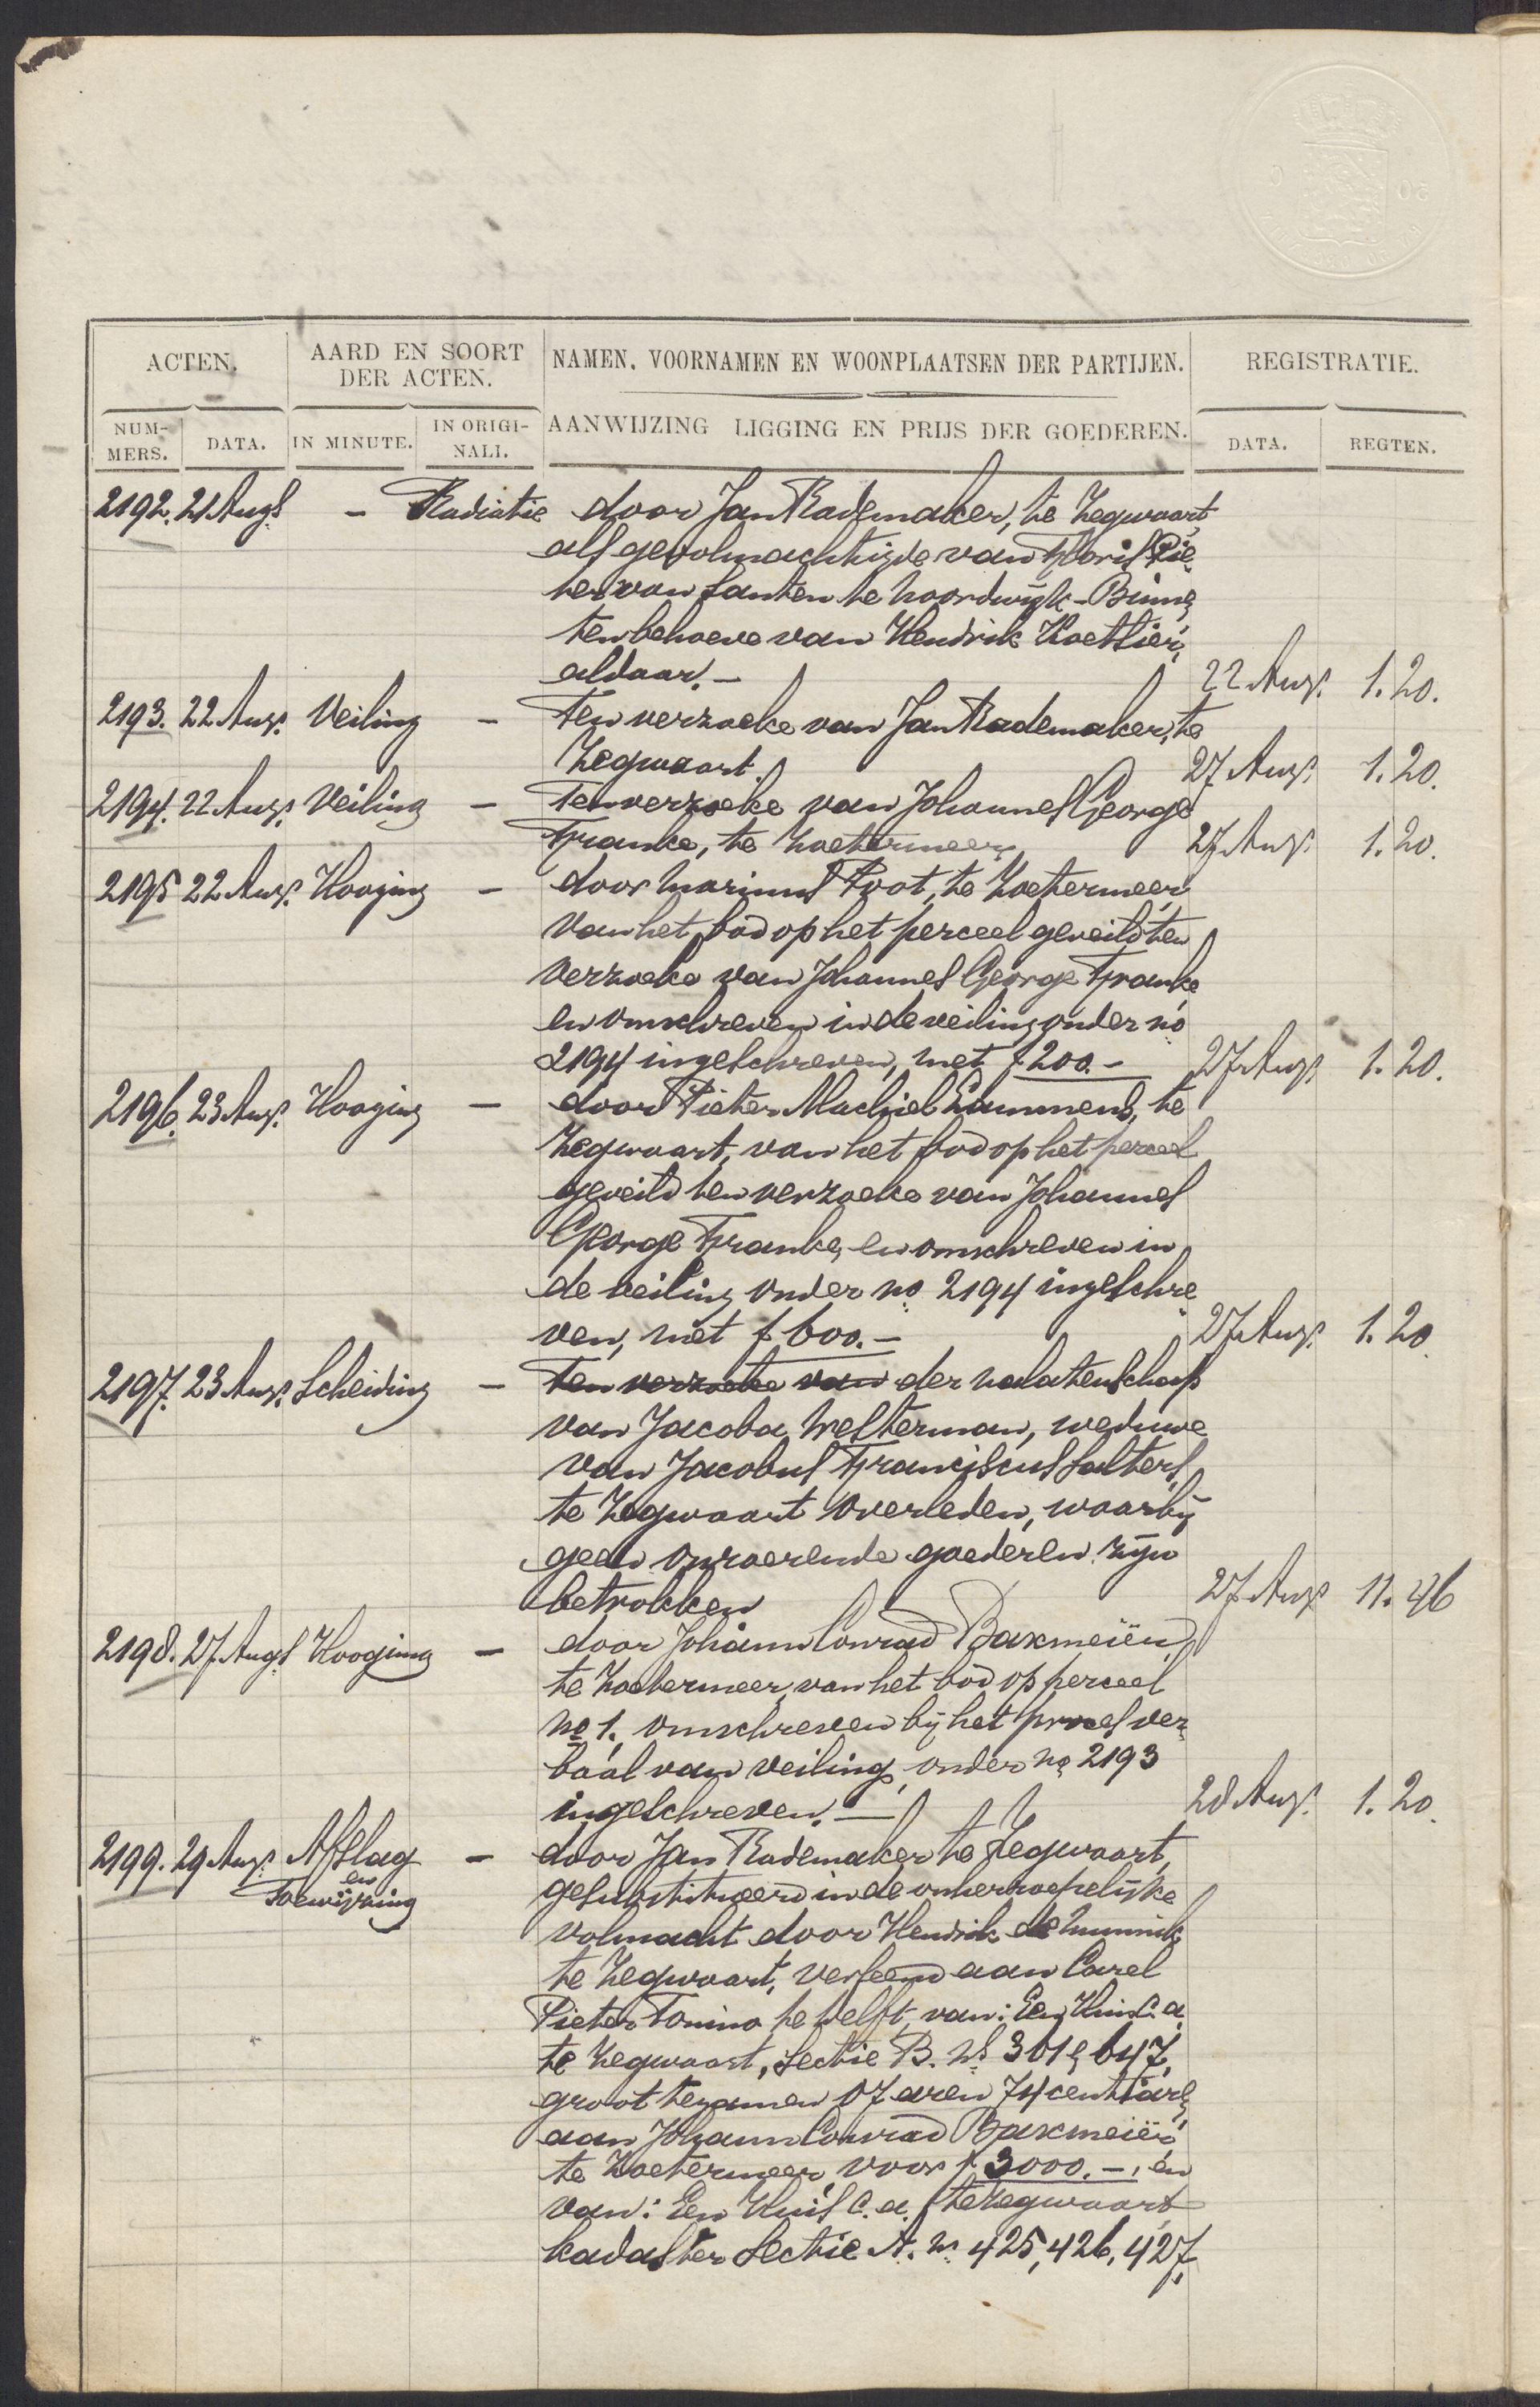 ACTEN. AARD EN SOORT DER ACTEN. NAMEN, VOORNAMEN EN WOONPLAATSEN DER PARTIJEN. REGISTRATIE.
NUMMERS. DATA. IN MINUTE. IN ORIGINALI. AANWIJZING LIGGING EN PRIJS DER GOEDEREN. DATA. REGTEN.
2192. 21 Augs - Radiatie door Jan Rademaker, te Zegwaart,
als gevolmachtigde van Floris Pie
ter van Santen te Noordwijk-Binnen
ten behoeve van Hendrik
aldaar. - 22 Augs. 1.20.
2193. 22 Augs. Veiling - Ten verzoeke van Jan Rademaker, te
Zegwaart. 27 Augs. 1.20.
2194. 22 Augs. Veiling - Ten verzoeke van Johannes George
Franke, te Zoetermeer, 27 Augs. 1.20.
2195 22 Augs. Hooging - door Marinus Poot, te Zoetermeer,
van het bod op het perceel geveild ten
verzoeke van Johannes George Franke
en omschreven in de veiling onder no
2194 ingeschreven, met f 200.- 27 Augs 1.20.
2196. 23 Augs. Hooging - door Pieter Machiel Emmens, te
Zegwaart, van het bod op het perceel
geveild ten verzoeke van Johannes
George Franke, en omschreven in
de veiling onder no 2194 ingeschre
ven, met f 600.- 27 Augs. 1.20
2197. 23 Augs. Scheiding - Ten verzoeke van der nalatenschap
van Jacoba Westerman, weduwe
van Jacobus Franciscus Salters,
te Zegwaart overleden, waarbij
geen onroerende goederen zijn
betrokken 27 Augs 11.46
2198. 27 Augs Hooging - door Johann Conrad Baxmeiër,
te Zoetermeer, van het bod op perceel
no 1. omschreven bij het proces ver
baal van veiling, onder no 2193
ingeschreven. - 28 Augs. 1.20.
2199. 29 Augs. Afslag - door Jan Rademaker te Zegwaart,
en
Toewijzing gesubstitueerd in de onherroepelijke
volmacht door Hendrik de
te Zegwaart, verleend aan Carel
Pieter Tonino te Delft, van: Een Huis c.a.
te Zegwaart, Sectie B. Ns 301 & 647,
groot tezamen 07 aren 74 centiare,
aan Johann Conrad Baxmeiër,
te Zoetermeer, voor f 3000.-, en
van: Een Huis c.a. te Zegwaart
kadaster Sectie A. Ns 425, 426, 427,